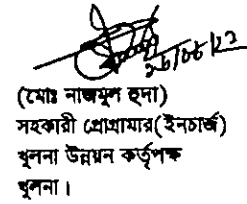 (মোঃ নাজমুল হুদা)
সহকারী প্রোগ্রামার(ইনচার্জ)
খুলনা উন্নয়ন কর্তৃপক্ষ
খুলনা।